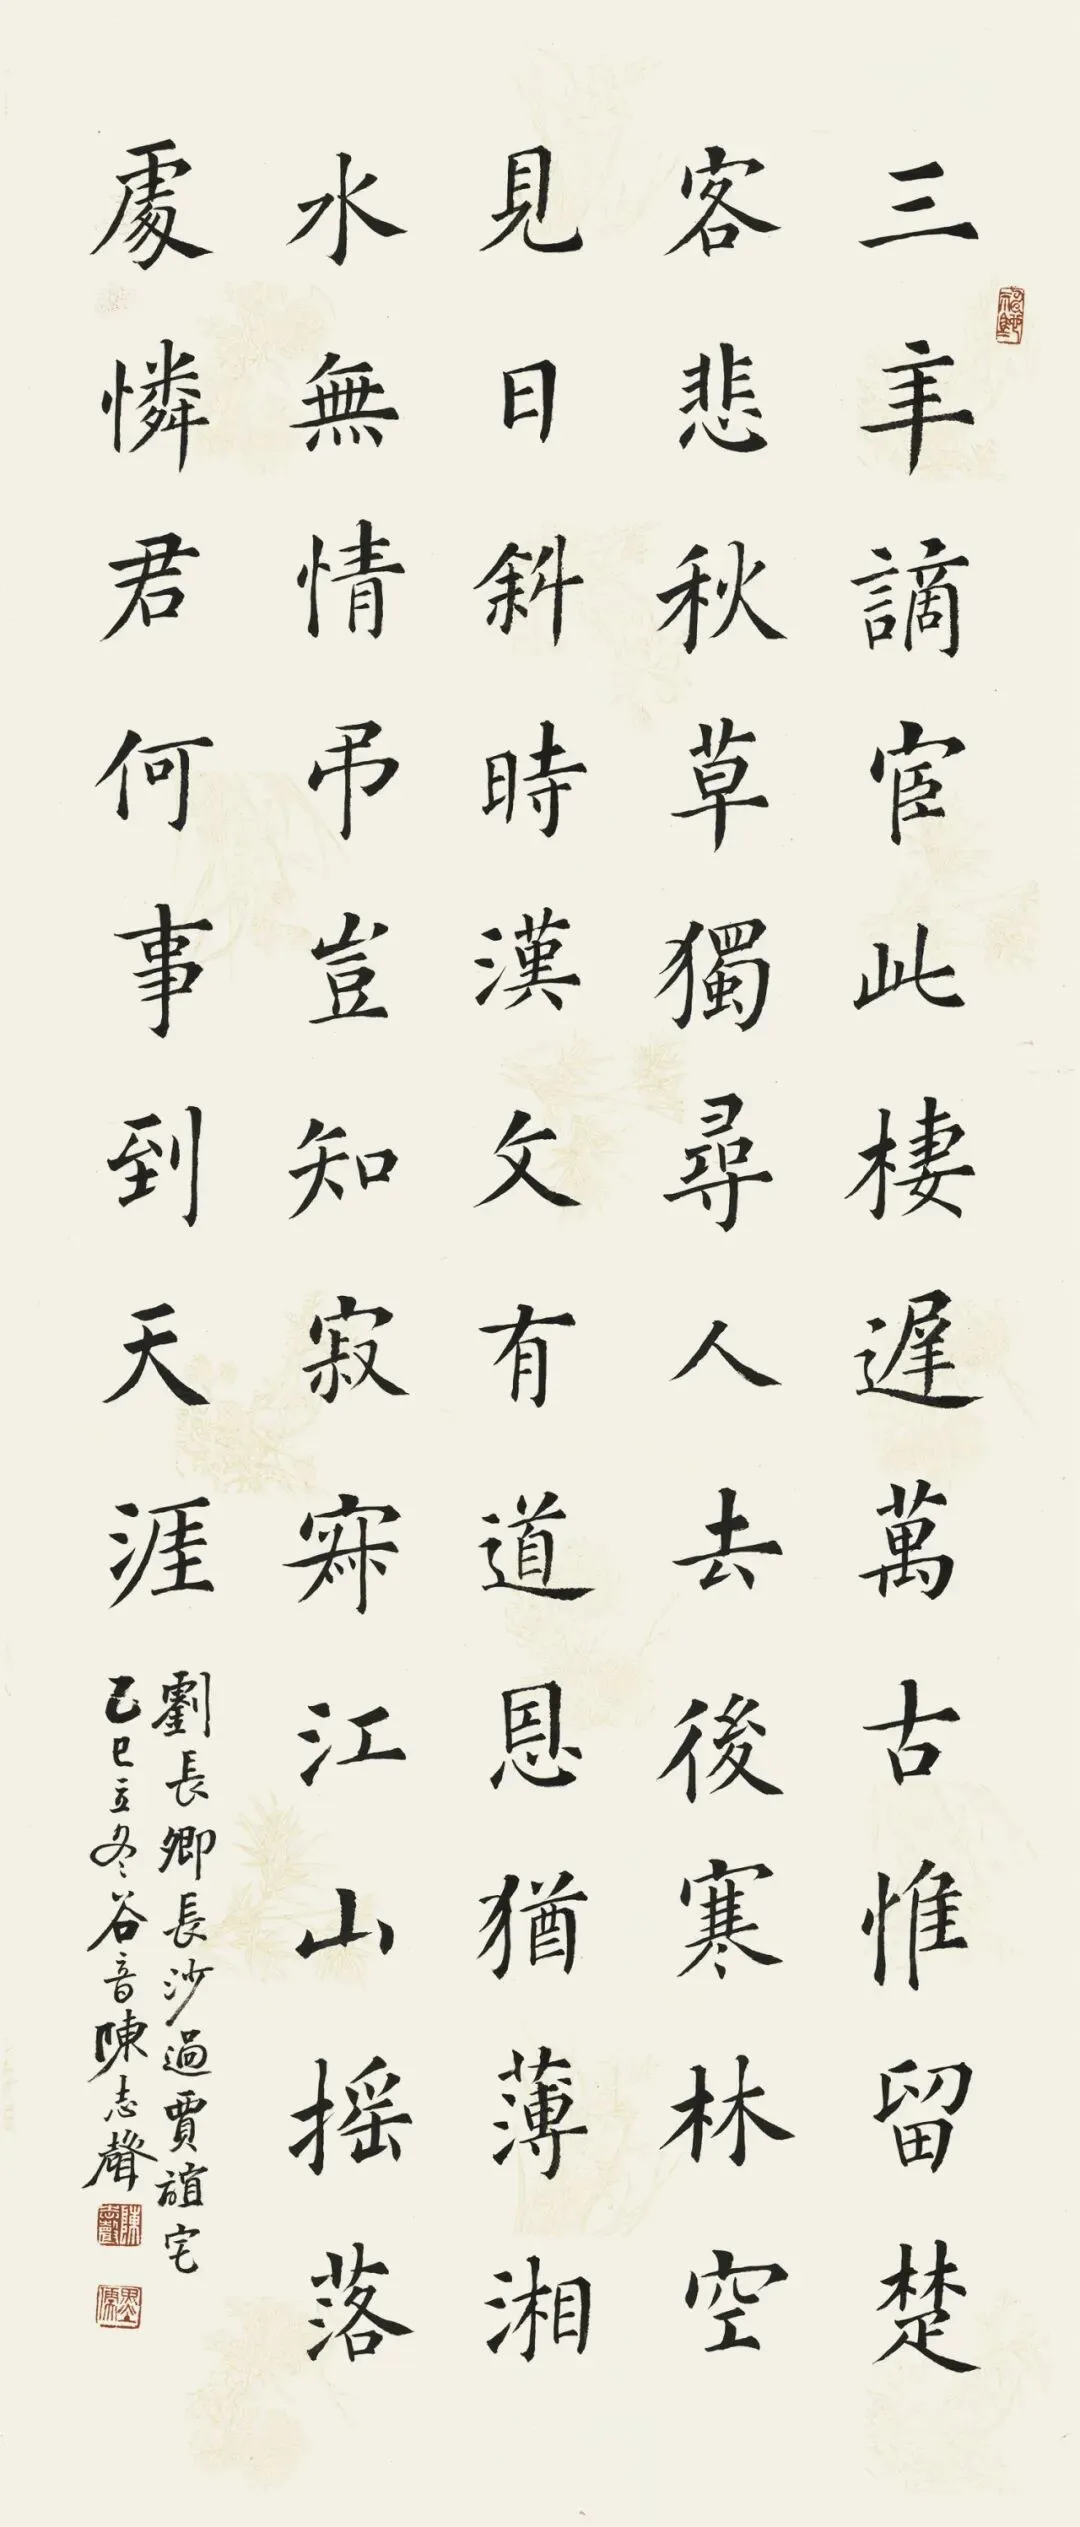 三年謫宦此棲遲萬古惟留楚
客悲秋草獨尋人去後寒林空
見日斜時漢文有道恩猶薄湘
水無情弔豈知寂寞江山搖落
處憐君何事到天涯
劉長卿長沙過賈誼宅
乙巳立冬谷音陳志聲
陳志聲